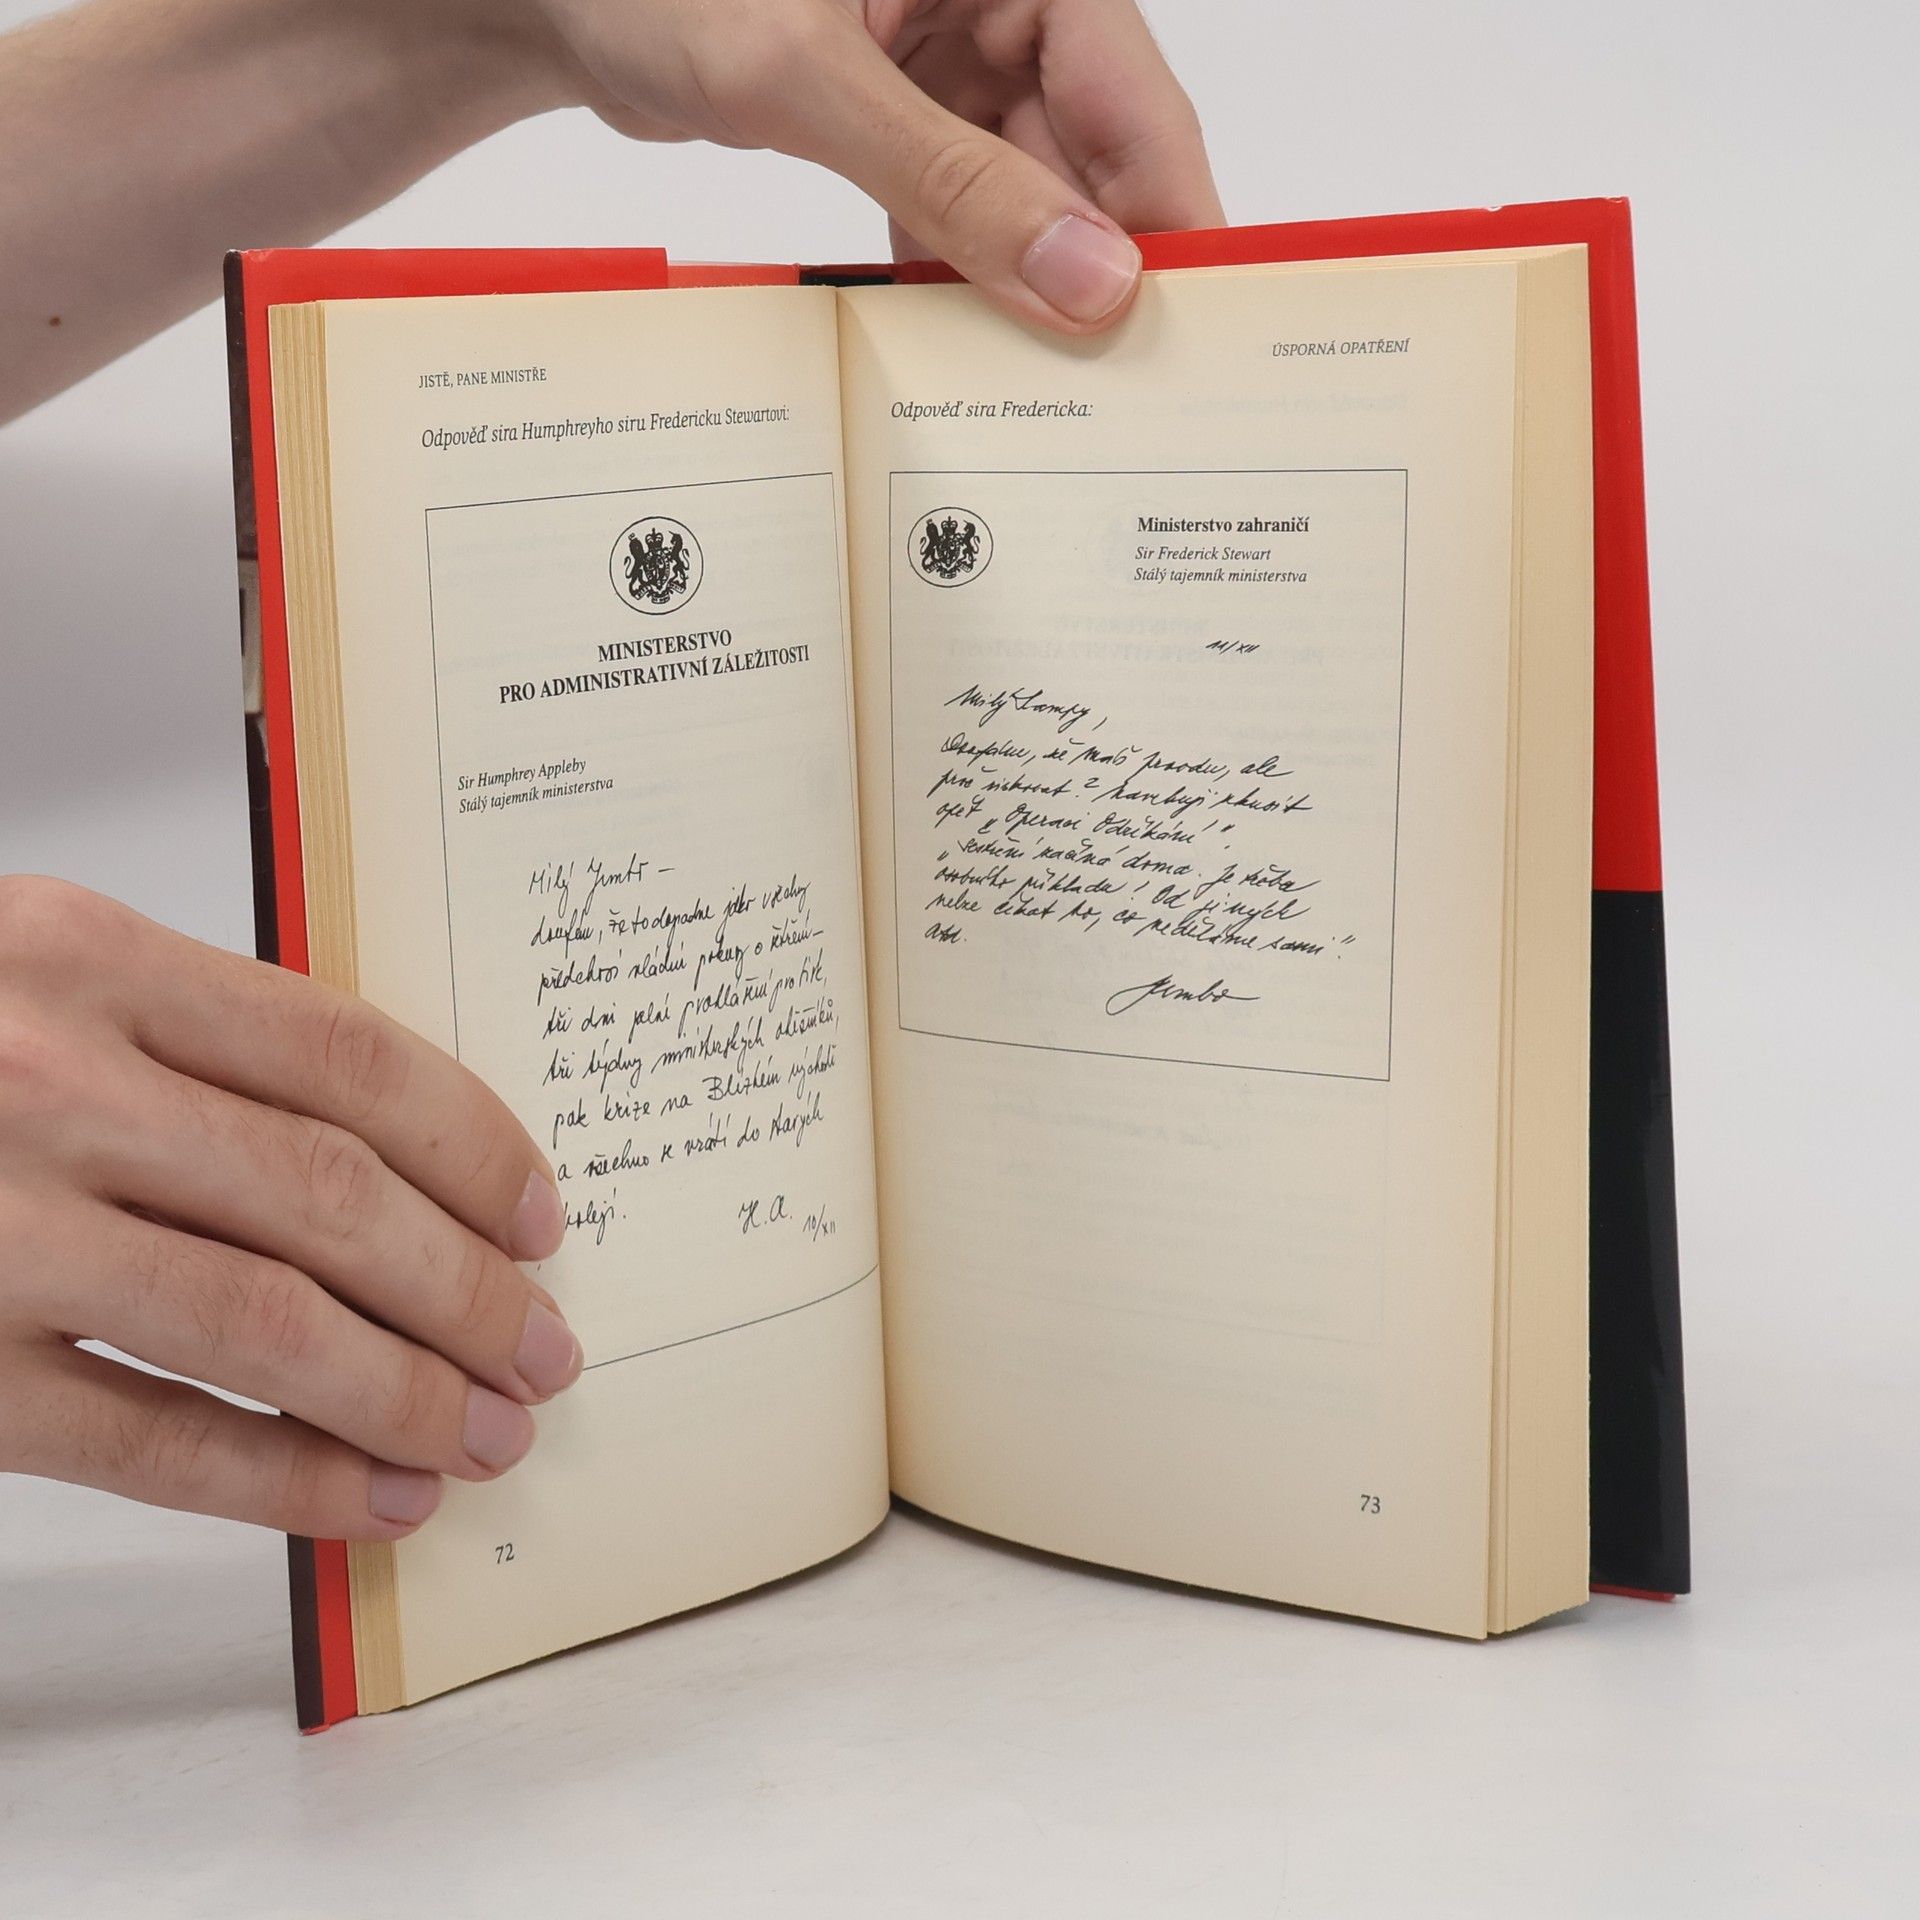 JISTĚ, PANE MINISTŘE
Odpověď sira Humphreyho siru Fredericku Stewartovi:
MINISTERSTVO
PRO ADMINISTRATIVNÍ ZÁLEŽITOSTI
Sir Humphrey Appleby
Stálý tajemník ministerstva
Milý Jumbo —
doufám, že to dopadne jako všechny
předchozí vládní pokusy o šetření —
tři dni jalné prohlášení pro tisk,
tři týdny ministerských oběžníků,
pak krize na Blízkém východě
a všechno se vrátí do starých
kolejí.
H. A. 10/XII
72
ÚSPORNÁ OPATŘENÍ
Odpověď sira Fredericka:
Ministerstvo zahraničí
Sir Frederick Stewart
Stálý tajemník ministerstva
11/XII
Milý
Doufám, že máš pravdu, ale
proč riskovat? Navrhuji zkusit
opět „Operaci Odříkání“.
„Šetření začíná doma. Je třeba
osobního příkladu! Od jiných
nelze čekat to, co neděláme sami“.
atd.
Jumbo
73